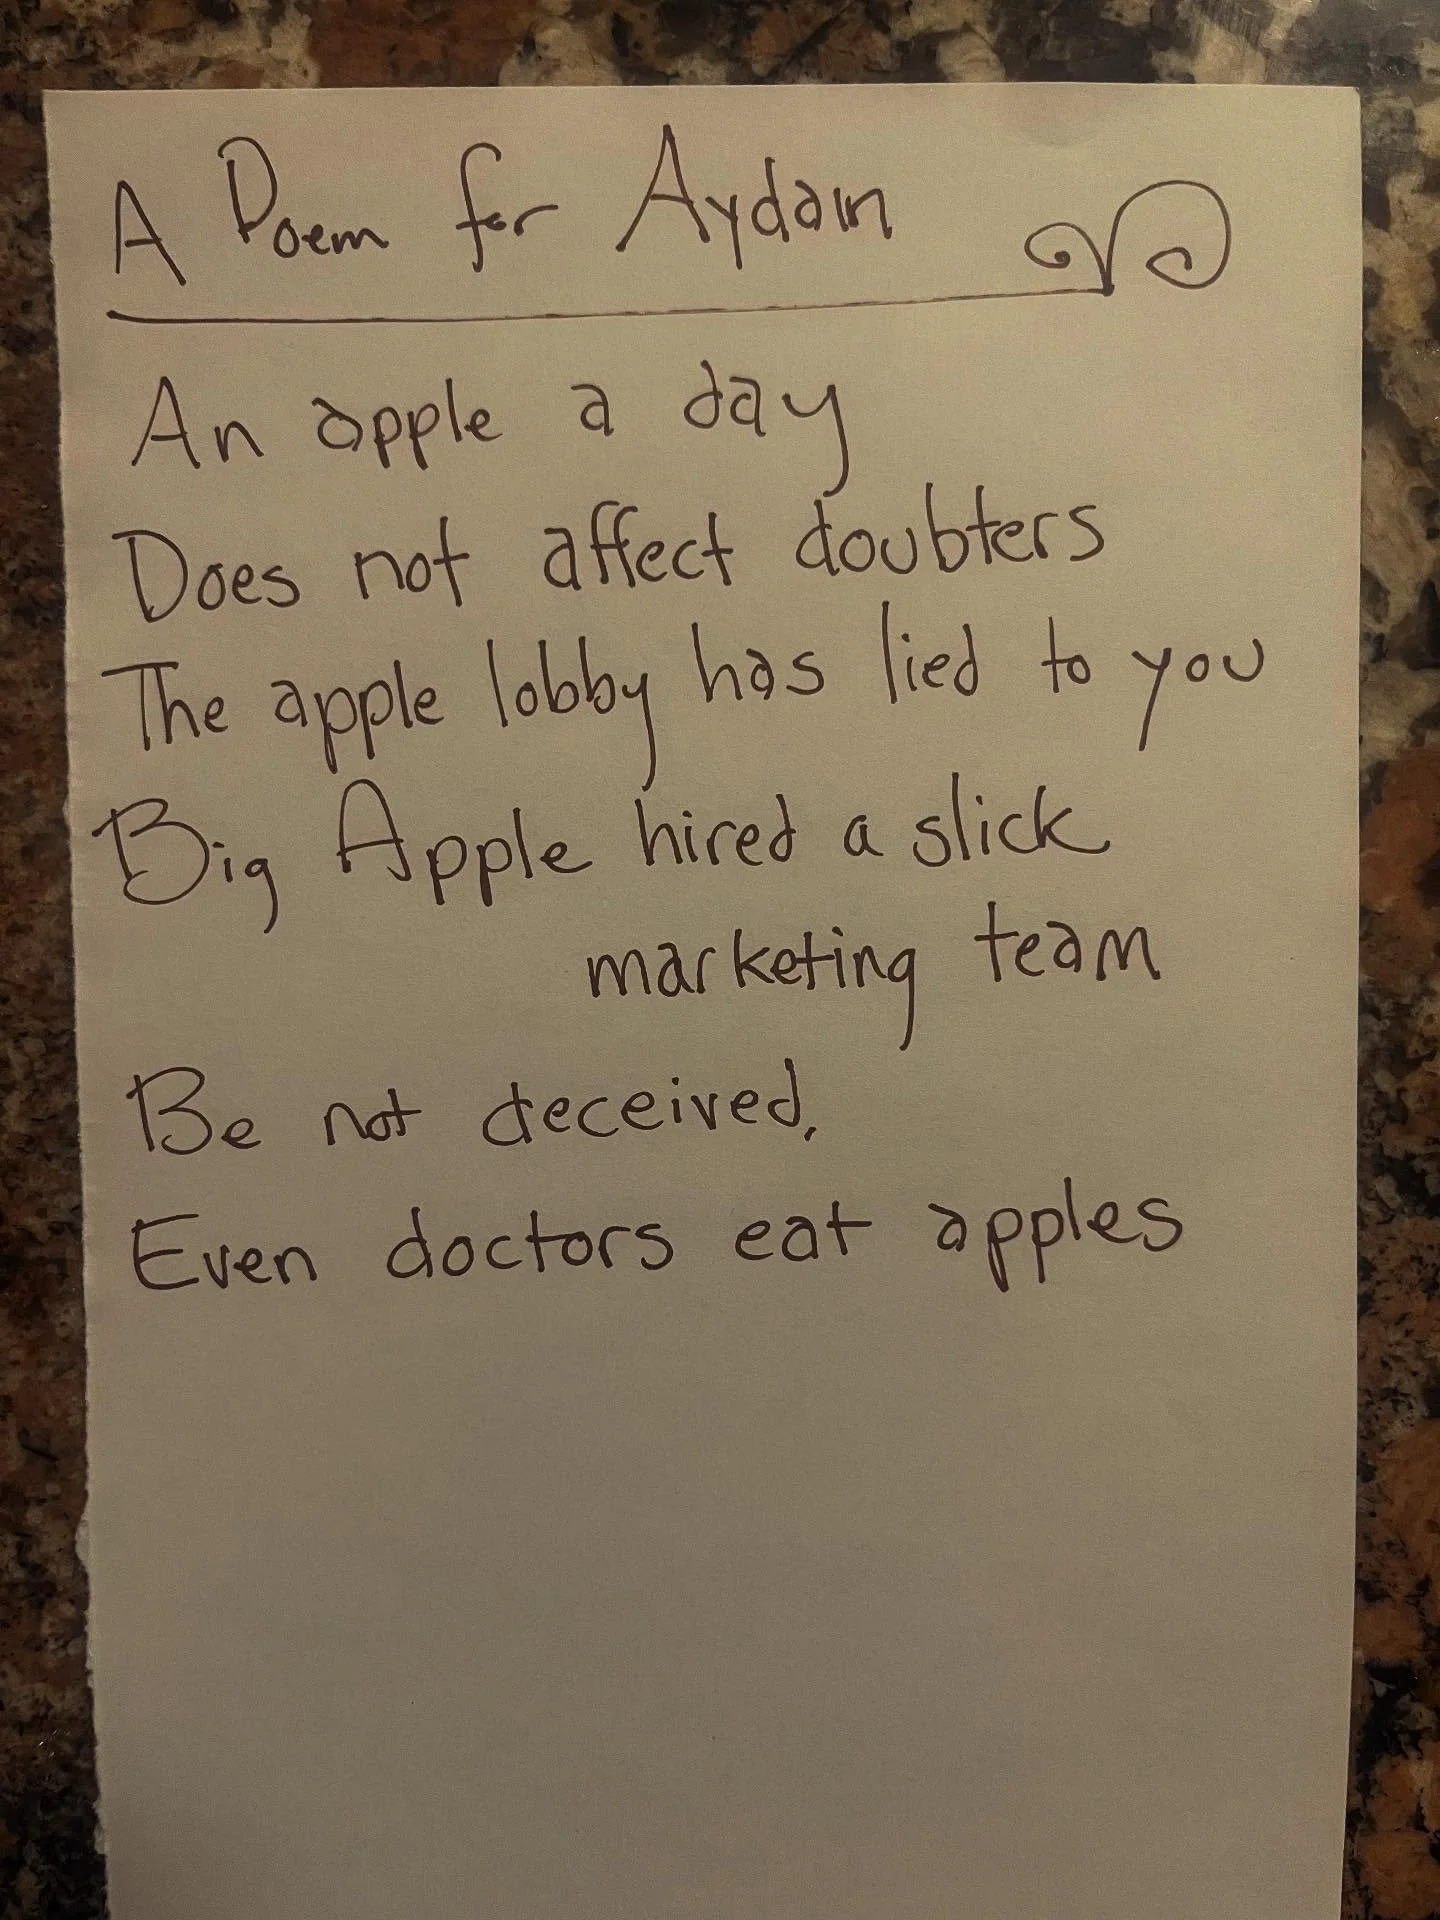 A Poem for Aydain
An apple a day
Does not affect doubters
The apple lobby has lied to you
Big Apple hired a slick
marketing team
Be not deceived,
Even doctors eat apples